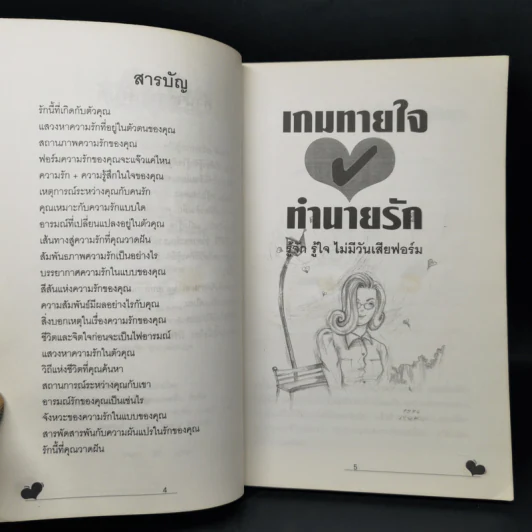 สารบัญ
รักนี้ที่เกิดกับตัวคุณ
แสวงหาความรักที่อยู่ในตัวตนของคุณ
สถานภาพความรักของคุณ
ฟอร์มความรักของคุณจะแจ๋วแค่ไหน
ความรัก + ความรู้สึกในใจของคุณ
เหตุการณ์ระหว่างคุณกับคนรัก
คุณเหมาะกับความรักแบบใด
อารมณ์ที่เปลี่ยนแปลงอยู่ในตัวคุณ
เส้นทางสู่ความรักที่คุณวาดฝัน
สัมพันธภาพความรักเป็นอย่างไร
บรรยากาศความรักในแบบของคุณ
สีสันแห่งความรักของคุณ
ความสัมพันธ์มีผลอย่างไรกับคุณ
สิ่งบอกเหตุในเรื่องความรักของคุณ
ชีวิตและจิตใจก่อนจะเป็นไฟอารมณ์
แสวงหาความรักในตัวคุณ
วิถีแห่งชีวิตที่คุณค้นหา
สถานการณ์ระหว่างคุณกับเขา
อารมณ์รักของคุณเป็นเช่นไร
จังหวะของความรักในแบบของคุณ
สารพัดสารพันกับความผันแปรในรักของคุณ
รักนี้ที่คุณวาดฝัน
4
เกมทายใจ
ทำนายรัก
รู้รัก รู้ใจ ไม่มีวันเสียฟอร์ม
5